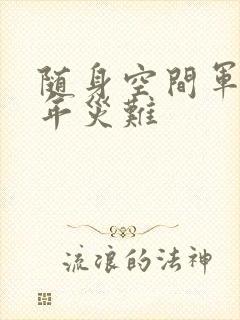 随身空間軍
年災難
流浪的法神